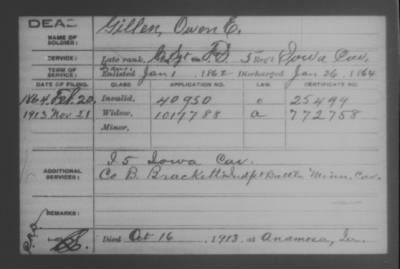 DEAD
Gillen, Owen E.
NAME OF SOLDIER:
SERVICE: Late rank, Co. F, 5 Reg't Iowa Cav.
TERM OF SERVICE: Enlisted Jan 1, 1862 Discharged Jan 26, 1864
DATE OF FILING. CLASS. APPLICATION NO. LAW. CERTIFICATE NO.
1864 Feb. 20, Invalid, 40950 25499
1913 Nov 21 Widow, 1017788 a 772758
Minor,
I. 5 Iowa Cav.
ADDITIONAL SERVICES: Co B. Brackett's Indpt Battn Minn. Cav.
REMARKS:
Died Oct 16, 1913, at Anamosa, Ia.